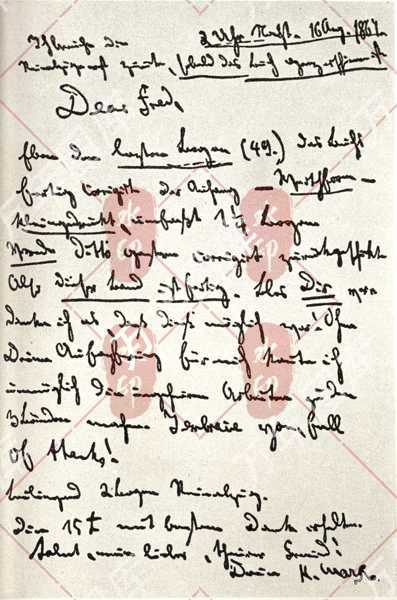 2 Uhr Nacht. 16 Aug. 1867.
Ich brauche den
Reinabzug zurück, sobald das Buch ganz erschienen ist
Dear Fred,
Eben den letzten Bogen (49.) des Buchs
fertig corrigirt. Der Anhang — Werthform —
kleingedruckt, umfaßt 1¼ Bogen.
Vorrede ditto gestern corrigirt zurückgeschickt.
Also dieser Band ist fertig. Blos Dir ver
danke ich es, daß dieß möglich war! Ohne
Deine Aufopferung für mich konnte ich
unmöglich die ungeheuren Arbeiten zu den
3 Bänden machen. I embrace you, full
of thanks!
Beiliegend 2 Bogen Reinabzug.
Die 15 £ mit bestem Dank erhalten.
Salut, mein lieber, theurer Freund!
Dein K. Marx.